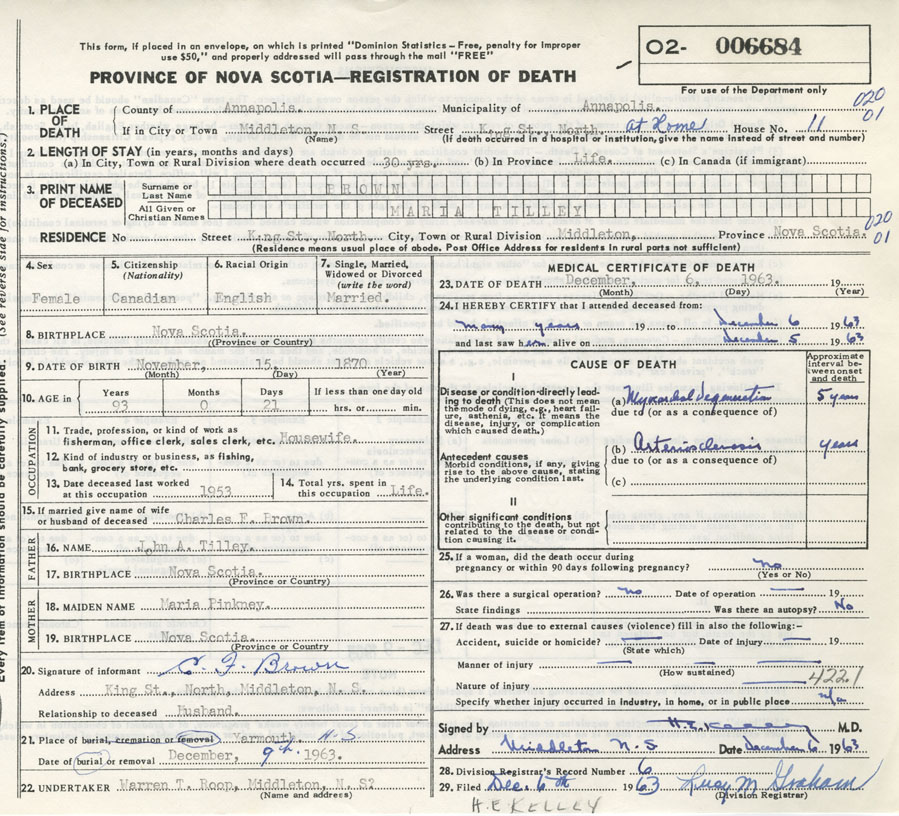 This form, if placed in an envelope, on which is printed "Dominion Statistics – Free, penalty for improper
use $50," and properly addressed will pass through the mail "FREE"
PROVINCE OF NOVA SCOTIA—REGISTRATION OF DEATH
O2- 006684
For use of the Department only
020
01
1. PLACE OF DEATH
County of Annapolis. Municipality of Annapolis.
If in City or Town Middleton, N. S. Street King St., North. at Home House No. 11
(Name) (If death occurred in a hospital or institution, give the name instead of street and number)
2. LENGTH OF STAY (in years, months and days)
(a) In City, Town or Rural Division where death occurred 30 yrs. (b) In Province Life. (c) In Canada (if immigrant)
3. PRINT NAME OF DECEASED
Surname or Last Name BROWN
All Given or Christian Names MARIA TILLEY
020
01
RESIDENCE No Street King St., North. City, Town or Rural Division Middleton, Province Nova Scotia.
(Residence means usual place of abode. Post Office Address for residents in rural parts not sufficient)
4. Sex
Female
5. Citizenship
(Nationality)
Canadian
6. Racial Origin
English
7. Single, Married, Widowed or Divorced
(write the word)
Married.
8. BIRTHPLACE Nova Scotia.
((Province or Country)
9. DATE OF BIRTH November, 15, 1870
(Month) (Day) (Year)
10. AGE in
Years Months Days If less than one day old
93 0 21 hrs. or min.
OCCUPATION
11. Trade, profession, or kind of work as
fisherman, office clerk, sales clerk, etc. Housewife.
12. Kind of industry or business, as fishing,
bank, grocery store, etc.
13. Date deceased last worked
at this occupation 1953
14. Total yrs. spent in
this occupation Life.
15. If married give name of wife
or husband of deceased Charles F. Brown.
FATHER
16. NAME John A. Tilley.
17. BIRTHPLACE Nova Scotia.
(Province or Country)
MOTHER
18. MAIDEN NAME Maria Pinkney.
19. BIRTHPLACE Nova Scotia.
(Province or Country)
20. Signature of informant C. F. Brown
Address King St., North, Middleton, N. S.
Relationship to deceased Husband.
21. Place of burial, cremation or removal Yarmouth. N-S
Date of burial or removal December, 9th. 1963.
22. UNDERTAKER Warren T. Roop, Middleton, N. S?
(Name and address)
MEDICAL CERTIFICATE OF DEATH
23. DATE OF DEATH December, 6, 1963. 19
(Month) (Day) (Year)
24. I HEREBY CERTIFY that I attended deceased from:
many years 19 to December 6 1963
and last saw her alive on December 5 1963
CAUSE OF DEATH
Approximate interval be-tween onset and death
I
Disease or condition directly lead-
ing to death (This does not mean
the mode of dying, e.g., heart fail-
ure, asthenia, etc. It means the
disease, injury, or complication
which caused death.)
(a) Myocardial Degeneration 5 years
due to (or as a consequence of)
Antecedent causes
Morbid conditions, if any, giving
rise to the above cause, stating
the underlying condition last.
(b) Arteriosclerosis years
due to (or as a consequence of)
(c)
II
Other significant conditions
contributing to the death, but not
related to the disease or condi-
tion causing it.
25. If a woman, did the death occur during
pregnancy or within 90 days following pregnancy? no
(Yes or No)
26. Was there a surgical operation? no Date of operation 19
State findings Was there an autopsy? No
27. If death was due to external causes (violence) fill in also the following:–
Accident, suicide or homicide? Date of injury 19
(State which)
Manner of injury
(How sustained)
Nature of injury 422.1
Specify whether injury occurred in industry, in home, or in public place n/a
Signed by H.E. Kelley M.D.
Address Middleton N.S Date December 6 1963
28. Division Registrar's Record Number 6
29. Filed Dec. 6th 1963 Lucy M Graham
(Division Registrar)
H.E KELLEY
(See reverse side for instructions.)
Every item of information should be carefully supplied.